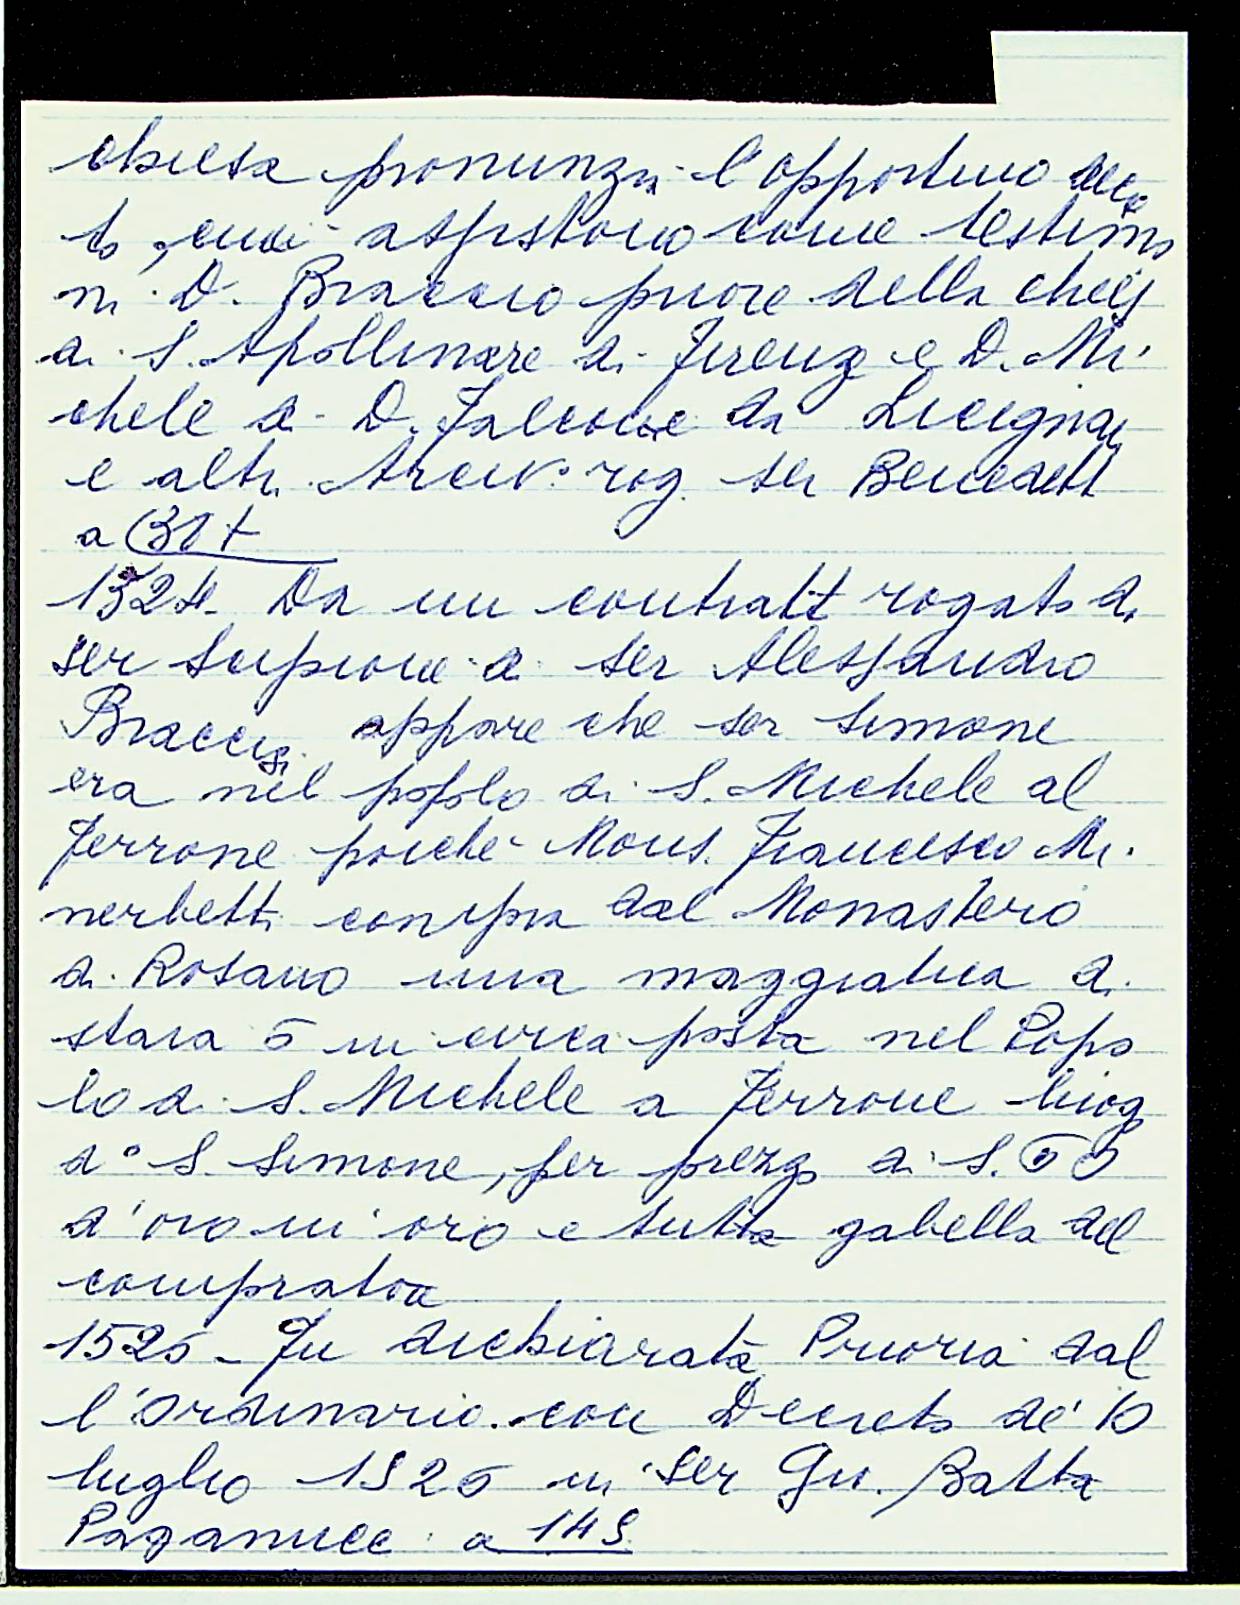 chiesa pronunziò l'opportuno decre
to, cui assistono come testimo
ni D. Braccio priore della chies
di S. Apollinare di Firenze e D. Mi
chele di D. Falcone da Lucigna
e altri. Arciv. rog. ser Benedett
a 307
1524 - Da un contratt rogato da
ser Scipione di ser Alessandro
Braccesi appare che ser Simone
era nel popolo di S. Michele al
Ferrone poiché Mons. Francesco Mi
nerbetti compra dal Monastero
di Rosano una maggiatica di
staia 5 in circa posta nel Popo
lo di S. Michele a Ferrone luog
d° S. Simone, per prezzo di S.
d'oro in oro e tutta gabella del
compratore
1525 - Fu dichiarata Prioria dal
l'Ordinario con Decreto de' 10
luglio 1525 in ser Gio. Batta
Paganucci a 149